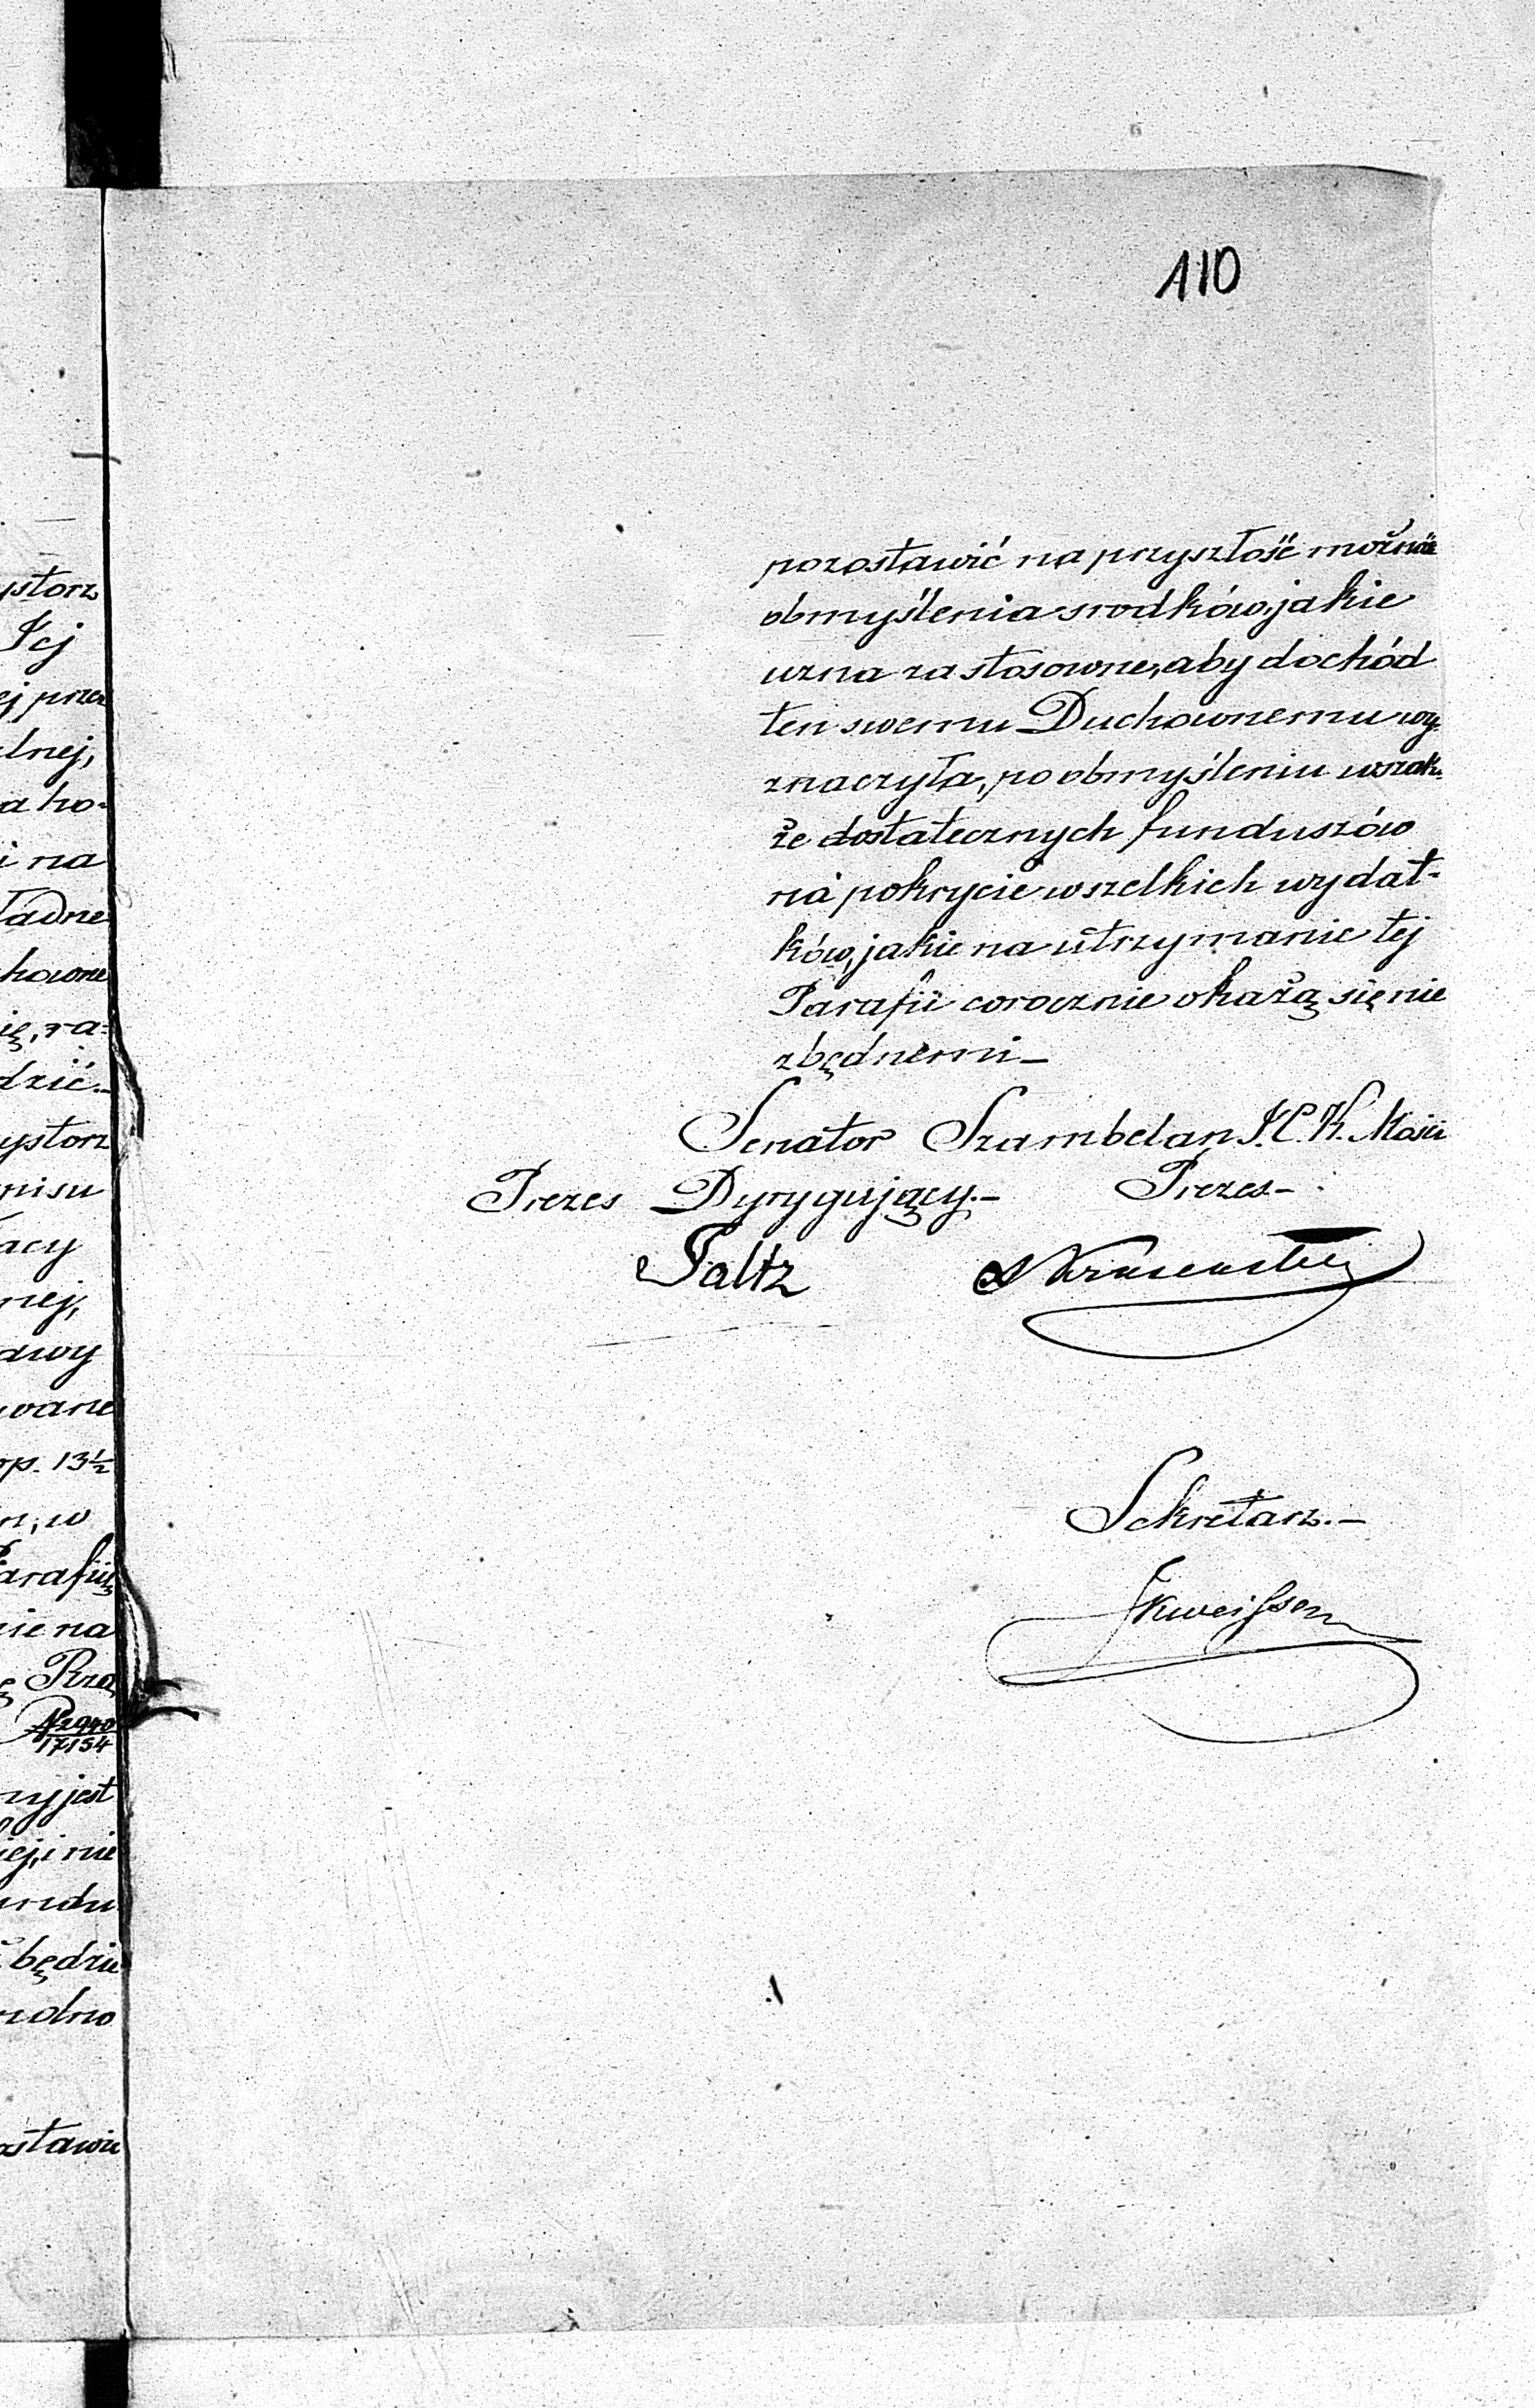 110
pozostawić na przyszłość możność
obmyślenia srodków, jakie
uzna za stosowne, aby dochód
ten swemu Duchownemu wy-
znaczyła, po obmyśleniu wszak-
że dostatecznych funduszów
na pokrycie wszelkich wydat-
ków, jakie na utrzymanie tej
Parafii corocznie okażą się nie
zbędnemi —
Senator Szambelan J. C. K. Mości
Prezes Dyrygujący.— Prezes —
Faltz
Sekretarz.—
ystorz
Jej
ej przez
lnej,
a ho-
i na
ładne
howne
ię, za-
dzić.—
ystorz
nisu
acy
nej,
awy
wane
op. 13½
n, w
Parafiią
nie na
Rzą
№2940
17154
ny jest
iej, i nie
undu
będzie
ndno
ostawie